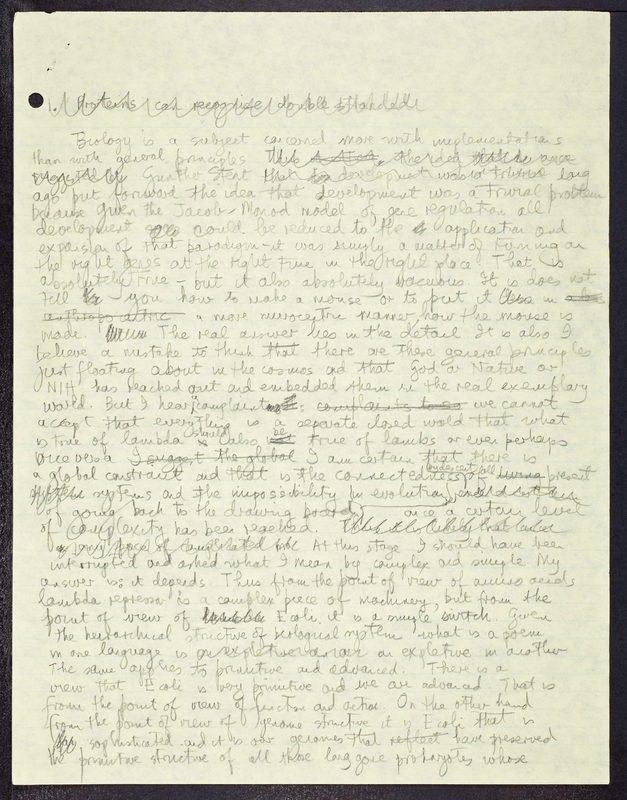 1. Proteins can recognize double stranded
Biology is a subject concerned more with implementations
than with general principles the idea once
suggested by Gunther Stent that development was a trivial long
ago put forward the idea that development was a trivial problem
because given the Jacob-Monod model of gene regulation all
development could be reduced to the application and
expansion of that paradigm - it was simply a matter of turning on
the right genes at the right time in the right place. That is
absolutely true - but it also absolutely vacuous. It is does not
tell you how to make a mouse - or to put it in
a more murocentric manner, how the mouse is
made. The real answer lies in the detail. It is also I
believe a mistake to think that there are these general principles
just floating about in the cosmos and that God or Nature or
NIH has reached out and embedded them in the real exemplary
world. But I hear complaints: we cannot
accept that everything is a separate closed world that what
is true of lambda should also be true of lambs or even perhaps
vice versa I suggest the global I am certain that there is
a global constraint and that is the connectedness of living present
systems and the impossibility in evolution
of going back to the drawing board once a certain level
of complexity has been reached.
At this stage I should have been
interrupted and asked what I mean by complex and simple. My
answer is: it depends. Thus from the point of view of amino acids
lambda repressor is a complex piece of machinery, but from the
point of view of E coli, it is a simple switch. Given
the hierarchical structure of biological system what is a poem
in one language is an expletive in another
The same applies to primitive and advanced. There is a
view that E coli is very primitive and we are advanced. That is
from the point of view of function and action. On the other hand
from the point of view of genome structure it is E coli that is
sophisticated and it is our genomes that reflect have preserved
the primitive structure of all those long gone prokaryotes whose